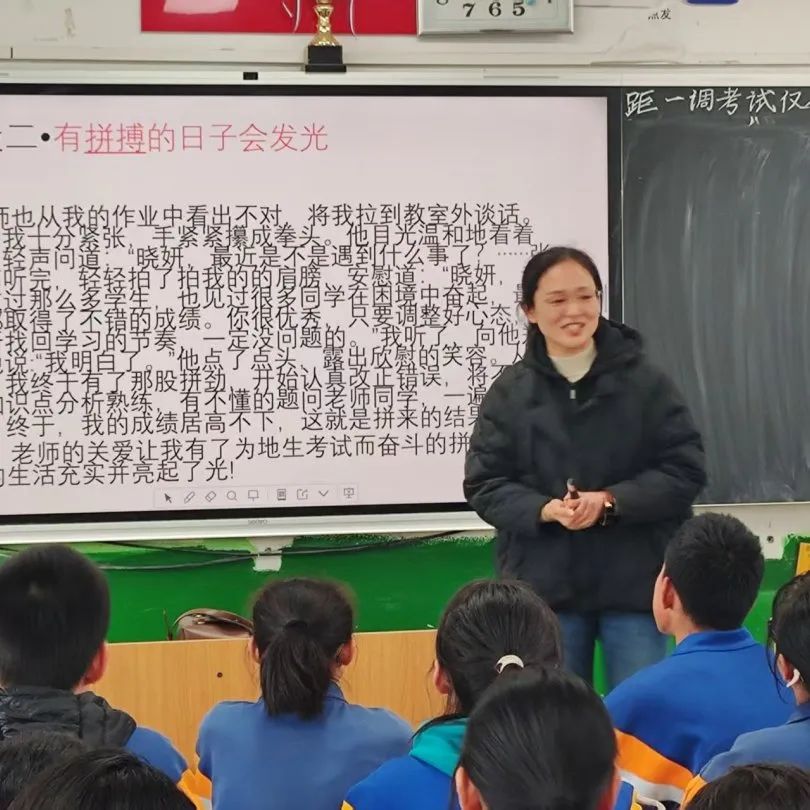 8 7 6 5
点发
二•有拼搏的日子会发光
距一调考试仅
师也从我的作业中看出不对，将我拉到教室外谈话。
我十分紧张，手紧紧攥成拳头。他目光温和地看着
轻声问道：“晓妍，最近是不是遇到什么事了？……张
听完，轻轻拍了拍我的的肩膀，安慰道：“晓妍，
过那么多学生，也见过很多同学在困境中奋起，最
都取得了不错的成绩。你很优秀，只要调整好心态，
找回学习的节奏，一定没问题的。”我听了，向他
说：“我明白了。”他点了点头，露出欣慰的笑容。从
我终于有了那股拼劲，开始认真改正错误，将不
识点分析熟练，有不懂的题问老师同学，一遍
终于，我的成绩居高不下，这就是拼来的结果
老师的关爱让我有了为地生考试而奋斗的拼
的生活充实并亮起了光!
seewo